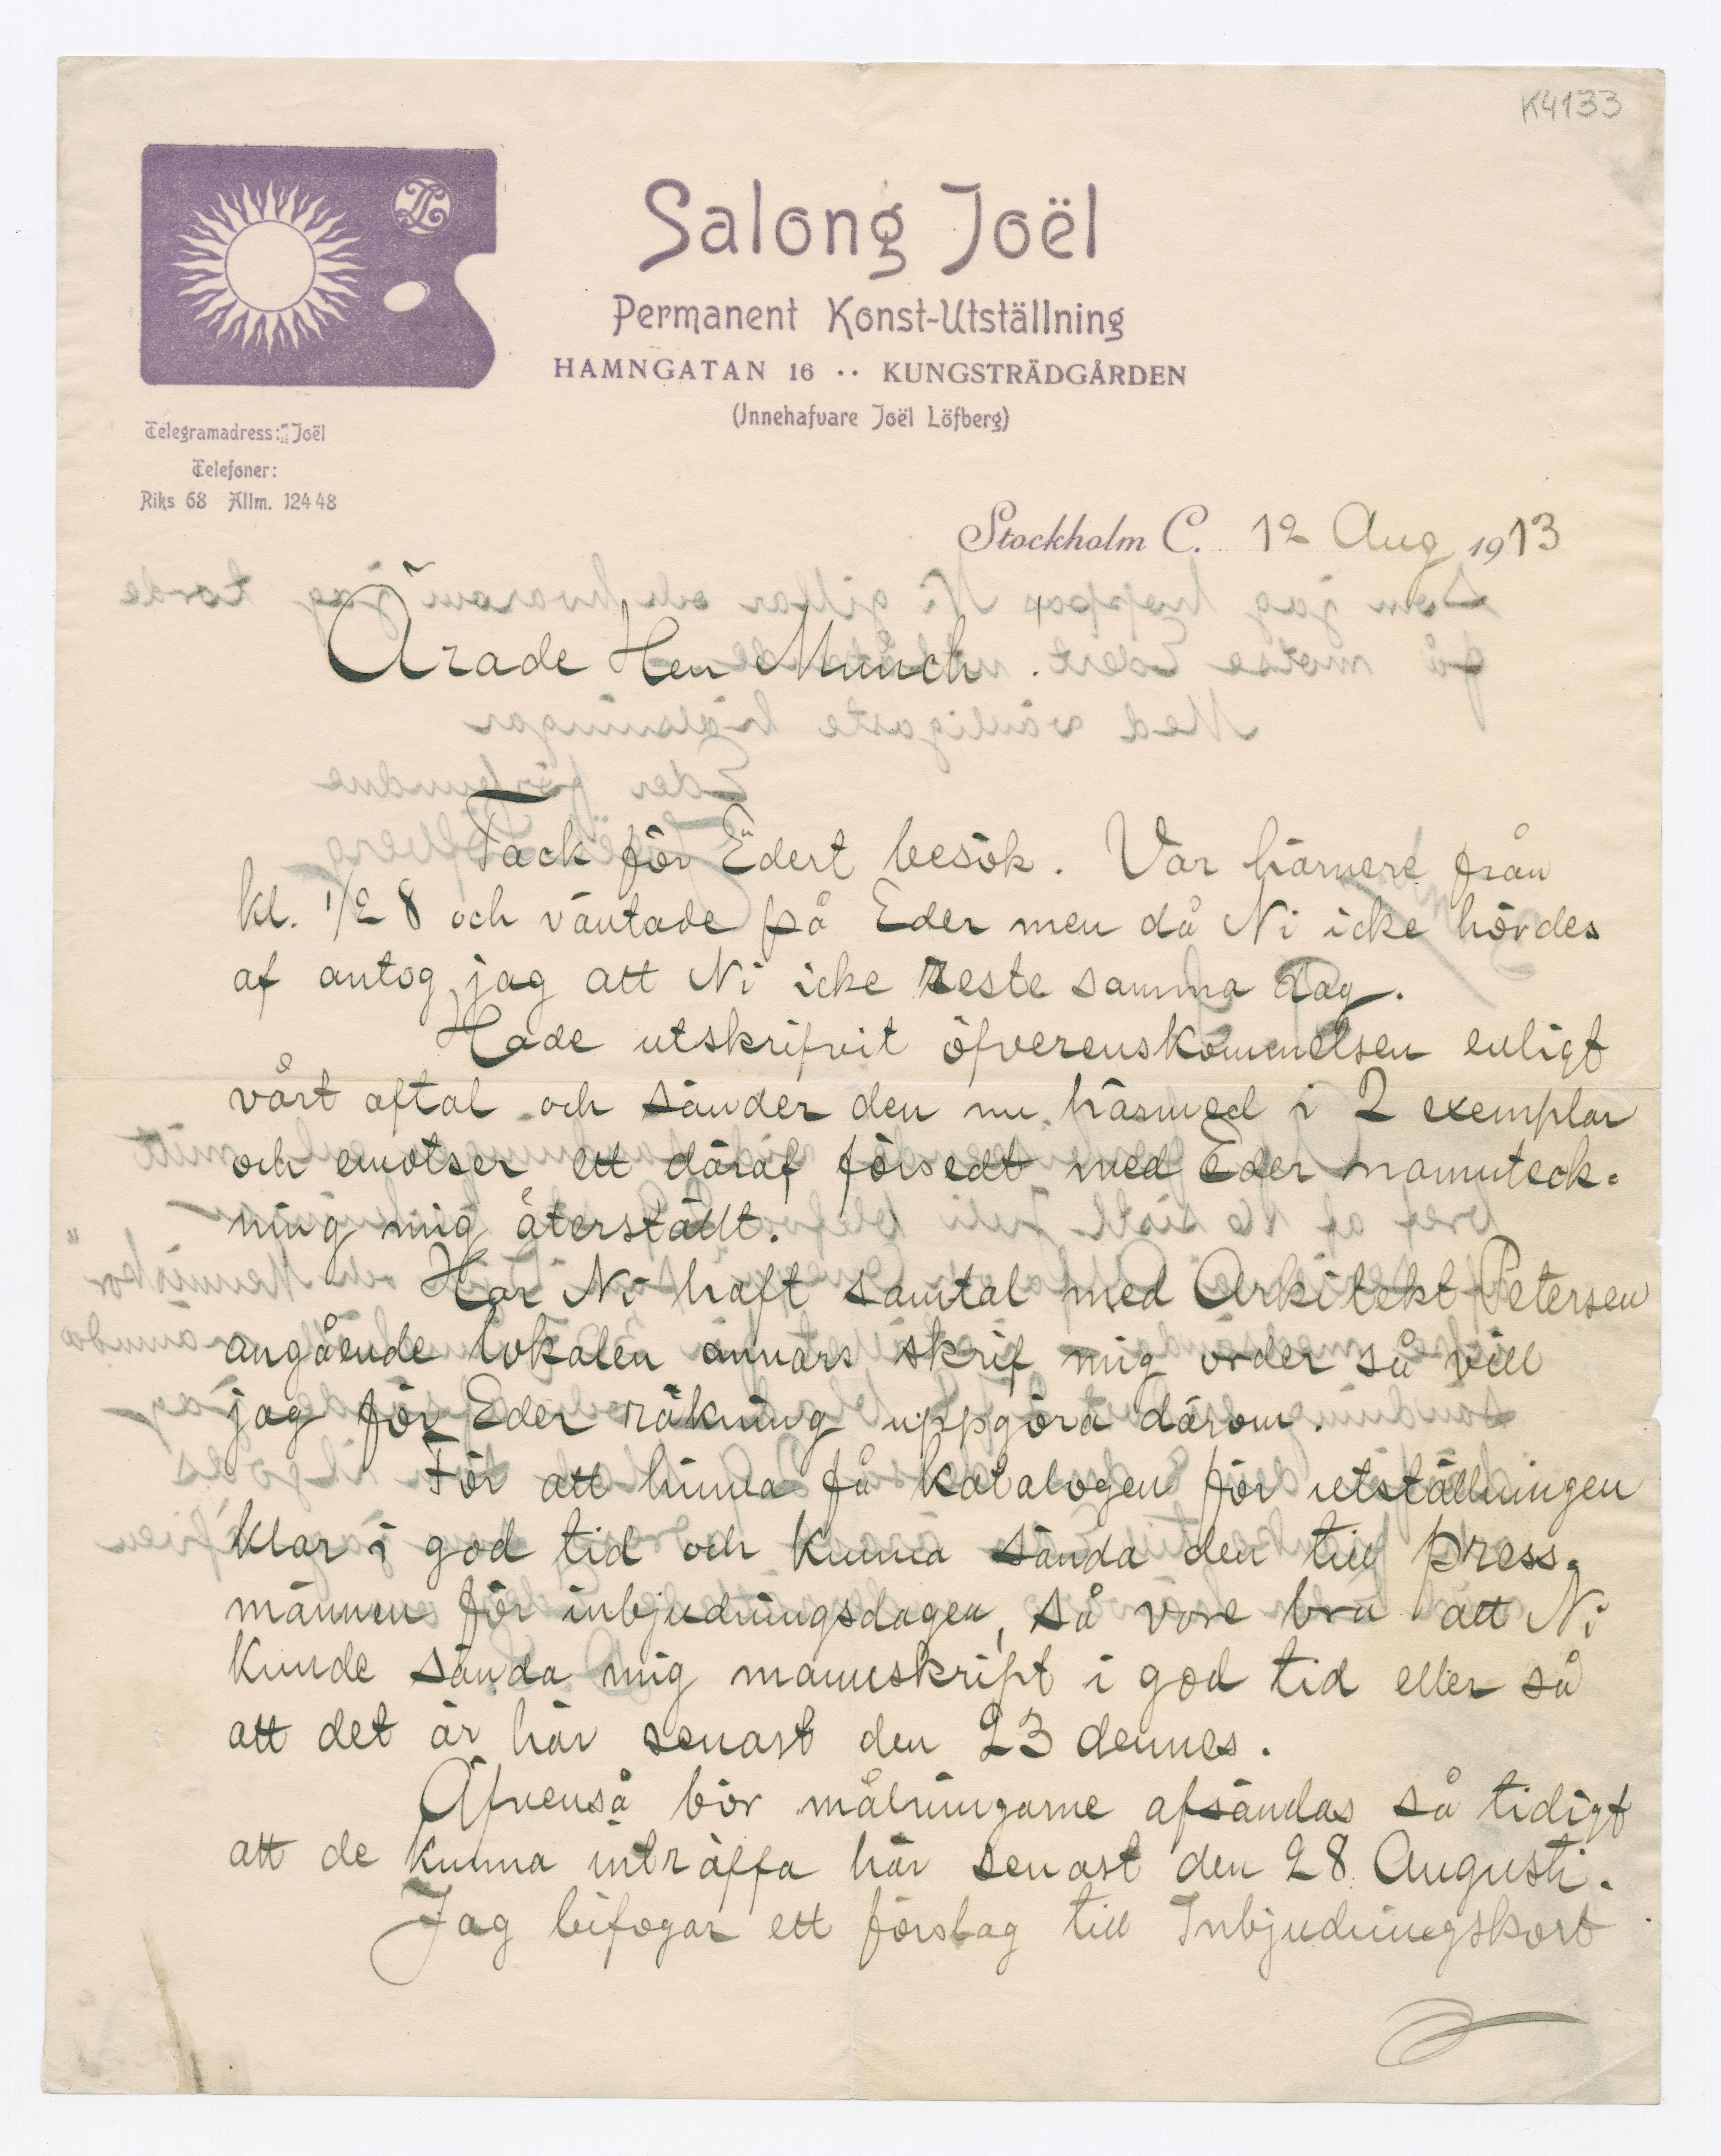 K4133
Salong Joël
Permanent Konst-Utställning
HAMNGATAN 16 ·· KUNGSTRÄDGÅRDEN
(Innehafvare Joël Löfberg)
Telegramadress: Joël
Telefoner:
Riks 68 Allm. 124 48
Stockholm C. 12 Aug 1913
Ärade Herr Munch.
Tack för Edert besök. Var härnere från
kl. 1/2 8 och väntade på Eder men då Ni icke hördes
af antog jag att Ni icke reste samma dag.
Hade utskrifvit öfverenskommelsen enligt
vårt aftal och sänder den nu härmed i 2 exemplar
och emotser ett däraf försedt med Eder namnteck-
ning mig återstäldt.
Har Ni haft samtal med Arkitekt Petersen
angående lokalen annars skrif mig order så vill
jag för Eder räkning uppgöra därom.
För att hinna få katalogen för utställningen
klar i god tid och kunna sända den till press-
männen för inbjudningsdagen, så vore bra att Ni
kunde sända mig manuskript i god tid eller så
att det är här senast den 23 dennes.
Äfvenså bör målningarne afsändas så tidigt
att de kunna inträffa här senast den 28 Augusti.
Jag bifogar ett förslag till Inbjudningskort